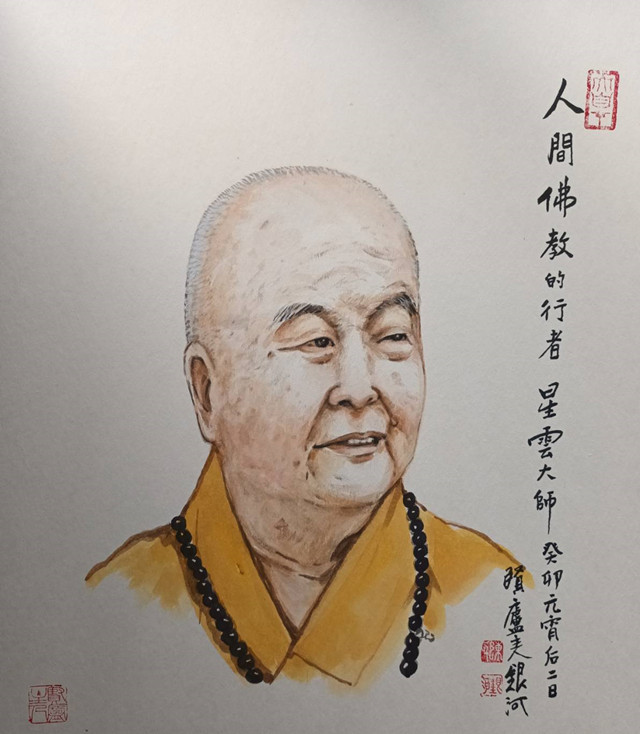 人間佛教的行者 星雲大師 癸卯元宵后二日
廬夫銀河